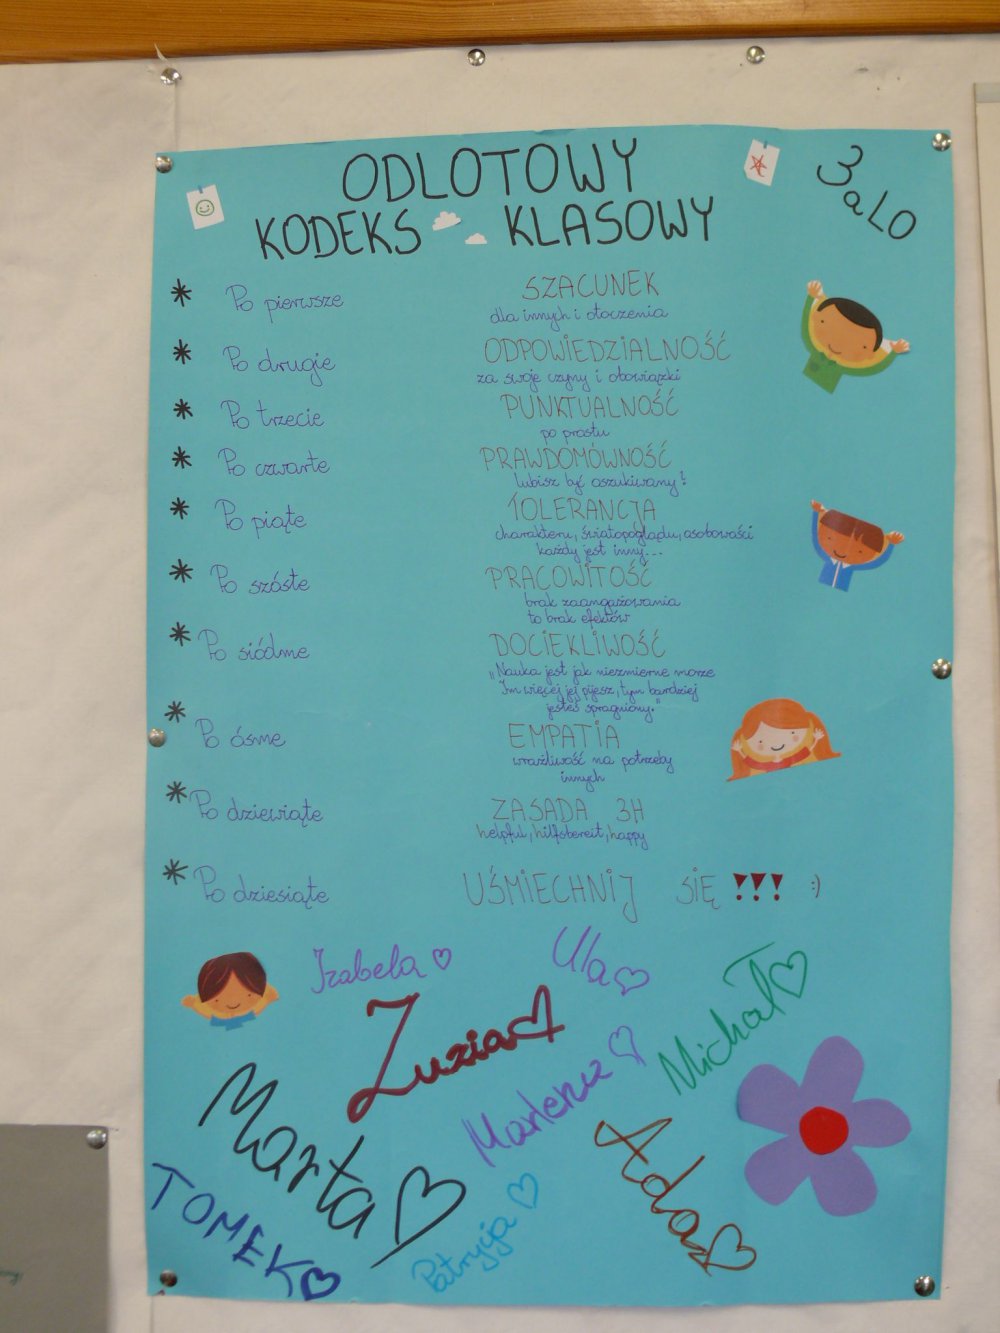 ODLOTOWY
KODEKS KLASOWY
3aLO
Po pierwsze
SZACUNEK
dla innych i otoczenia
Po drugie
ODPOWIEDZIALNOŚĆ
za swoje czyny i obowiązki
Po trzecie
PUNKTUALNOŚĆ
po prostu
Po czwarte
PRAWDOMÓWNOŚĆ
lubisz być oszukiwany?
Po piąte
TOLERANCJA
charakteru, światopoglądu, osobowości
każdy jest inny...
Po szóste
PRACOWITOŚĆ
brak zaangażowania
to brak efektów
Po siódme
DOCIEKLIWOŚĆ
„Nauka jest jak niezmierne morze
Im więcej jej pijesz, tym bardziej
jesteś spragniony."
Po ósme
EMPATIA
wrażliwość na potrzeby
innych
Po dziewiąte
ZASADA 3H
helpful, hilfsbereit, happy
Po dziesiąte
UŚMIECHNIJ SIĘ !!! :)
Izabela
Ula
Michał
Zuzia
Marlena
Marta
Adaś
TOMEK
Patrycja